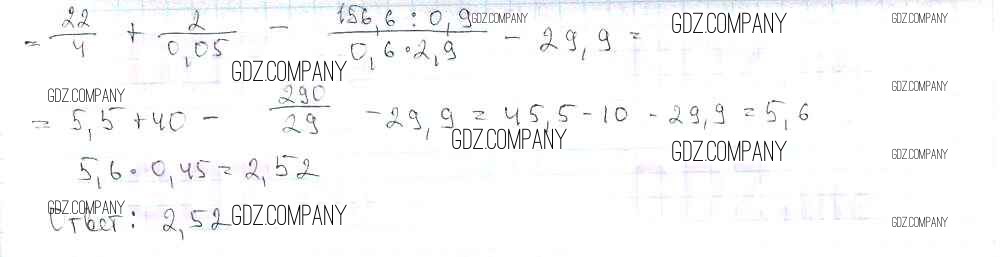 = 22/4 + 2/0,05 - 156,6 : 0,9/0,6 · 2,9 - 29,9 =
= 5,5 + 40 - 290/29 - 29,9 = 45,5 - 10 - 29,9 = 5,6
5,6 · 0,45 = 2,52
Ответ: 2,52
GDZ.COMPANY
GDZ.COMPANY
GDZ.COMPANY
GDZ.COMPANY
GDZ.COMPANY
GDZ.COMPANY
GDZ.COMPANY
GDZ.COMPANY
GDZ.COMPANY
GDZ.COMPANY
GDZ.COMPANY
GDZ.COMPANY